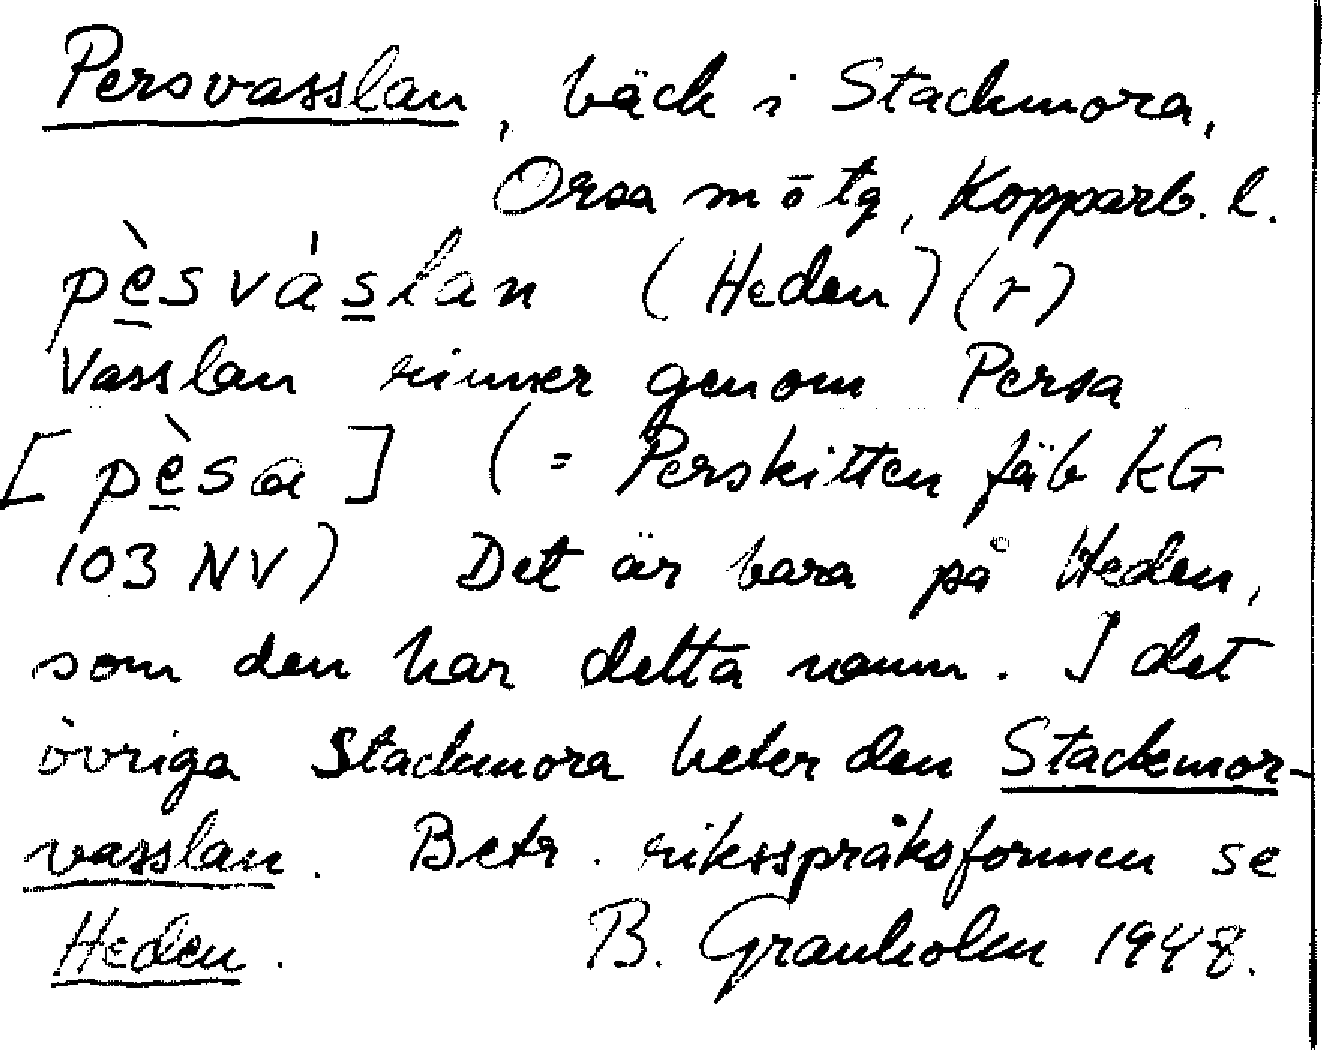 Persvasslan, bäck i Stackmora,
Orsa sn ō tg, Kopparb. l.
pè̱sváṣlan (Heden) (r)
Vasslan rinner genom Persa
[pè̱sa] (= Perskitten fäb kG
103 NV) Det är bara på Heden,
som den har detta namn. I det
övriga Stackmora heter den Stackmor-
vasslan. Betr. riksspråksformen se
Heden. B. Granholm 1948.